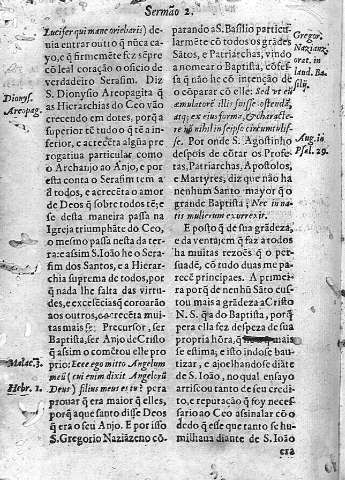 Sermão 2.
Lucifer qui mane oriebaris) de-
uia entrar outro q̃ nũca ca-
yo, e q̃ firmemẽte fez sẽpre
cõ leal coração o oficio de
verdadeiro Serafim. Diz
S. Dionysio Areopagita q̃
as Hierarchias do Ceo vão
crecendo em dotes, porq̃ a
superior tẽ tudo o q̃ tẽ a in-
ferior, e acrecẽta algũa pre
rogatiua particular como
o Archanjo ao Anjo, e por
esta conta o Serafim tem a
todos, e acrecẽta o amor
de Deos q̃ sobre todos tẽ; e
se desta maneira passa na
Igreja triumphãte do Ceo,
o mesmo passa nesta da ter-
ra: e assim S. Ioão he o Sera-
fim dos Santos, e a Hierar-
chia suprema de todos, por
q̃ nada lhe falta das virtu-
des, e excelẽcias q̃ coroarão
aos outros, e acrecẽta mui-
tas mais s: Precursor, ser
Baptista, ser Anjo de Cristo
q̃ assim o comẽtou elle pro
prio: Ecce ego mitto Angelum
meũ (cui enim dixit Angelorũ
Deus) filius meus es tu? pera
prouar q̃ era maior q̃ elles,
porq̃ aque santo disse Deos
q̃ era o seu Anjo. E por isso
S. Gregorio Naziãzeno cõ-
Dionys.
Areopag.
Malac. 3.
Hebr. 1.
parando a S. Basilio particu-
larmẽte cõ todos os grãdes
Sãtos, e Patriarchas, vindo
a nomear o Baptista, cõfes-
sa q̃ não he cõ intenção de
o cõparar cõ elle: Sed ut eũ
æmulatorẽ illi fuisse ostendã,
atq; ex eius forma, & characte-
re nõ nihil in seipso circumtulis-
se. Por onde S. Agostinho
despois de cõtar os Profe-
tas, Patriarchas, Apostolos,
e Martyres, diz que não ha
nenhum Santo mayor q̃ o
grande Baptista; Nec in na-
tis mulierum exurrexit.
E posto q̃ de sua grãdeza,
e da ventajem q̃ faz a todos
ha muitas rezoẽs q̃ o per-
suadẽ, cõ tudo duas me pa-
recẽ principaes. A primei-
ra porq̃ de nenhũ Sãto cus-
tou mais a grãdeza a Cristo
N. S. q̃ a do Baptista, porq̃
pera ella fez despeza de sua
propria hõra, q̃ he o q̃ mais
se estima; e isto indose bau-
tizar, e ajoelhandose diãte
de S. Ioão, no qual ensayo
arriscou tanto de seu credi-
to, e reputação q̃ foy neces-
sario ao Ceo assinalar cõ o
dedo q̃ esse que tanto se hu-
milhaua diante de S. Ioão
era
Gregor.
Nazianz.
orat. in
laud. Ba-
silij.
Aug. in
Psal. 29.